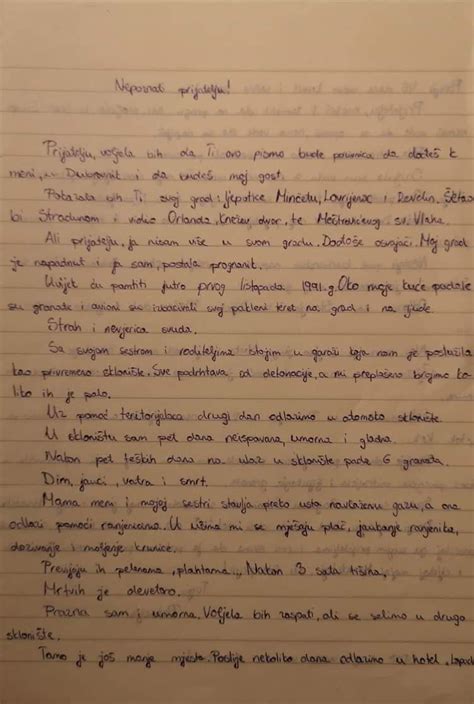 Nepoznati prijatelju!
Prijatelju, voljela bih da Ti ovo pismo bude pozivnica da dođeš k
meni, u Dubrovnik i da budeš moj gost.
Pokazala bih Ti svoj grad: ljepotice Minčetu, Lovrijenac i Revelin. Šetao
bi Stradunom i vidio Orlanda, Knežev dvor, te Meštrovićevog sv. Vlaha.
Ali prijatelju, ja nisam više u svom gradu. Dođoše osvajači. Moj grad
je napadnut i ja sam postala prognanik.
Uvijek ću pamtiti jutro prvog listopada 1991.g. Oko moje kuće padale
su granate i avioni su izbacivali svoj pakleni teret na grad i na ljude.
Strah i nevjerica svuda.
Sa svojom sestrom i roditeljima stojim u garaži koja nam je poslužila
kao privremeno sklonište. Sve podrhtava od detonacije, a mi preplašeno brojimo ko-
liko ih je palo.
Uz pomoć teritorijalaca drugi dan odlazimo u atomsko sklonište.
U skloništu sam pet dana neispavana, umorna i gladna.
Nakon pet teških dana na ulaz u sklonište pade 6 granata.
Dim, jauci, vatra i smrt.
Mama meni i mojoj sestri stavlja preko usta navlaženu gazu, a ona
odlazi pomoći ranjenicima. U ušima mi se miješaju plač, jaukanje ranjenika,
dozivanje i moljenje krunice.
Previjaju ih pelenama, plahtama... Nakon 3 sata tišina.
Mrtvih je devetero.
Prazna sam i umorna. Voljela bih zaspati, ali se selimo u drugo
sklonište.
Tamo je još manje mjesta. Poslije nekoliko dana odlazimo u hotel